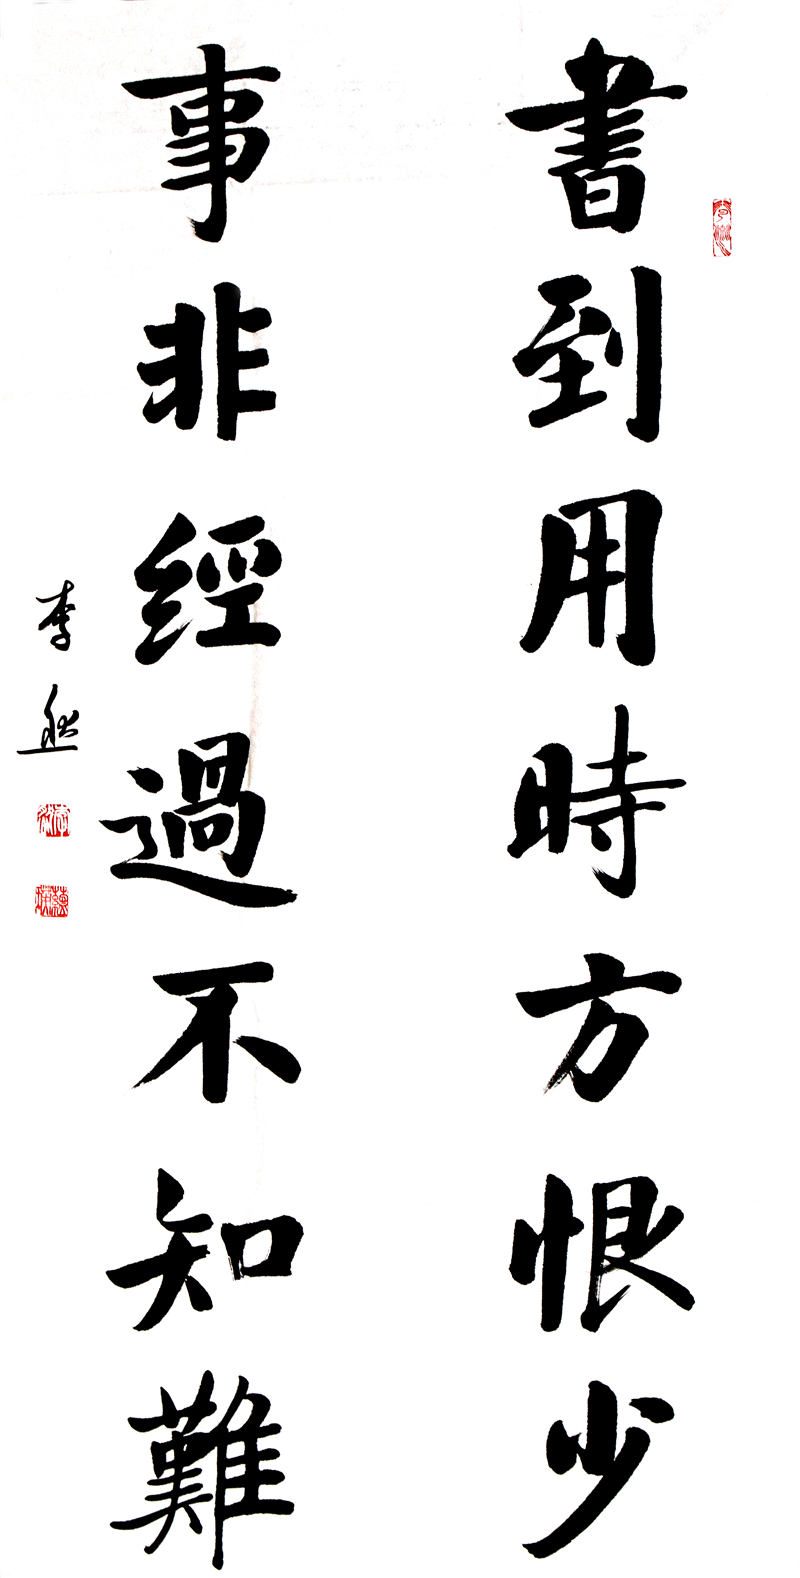 書到用時方恨少
事非經過不知難
李